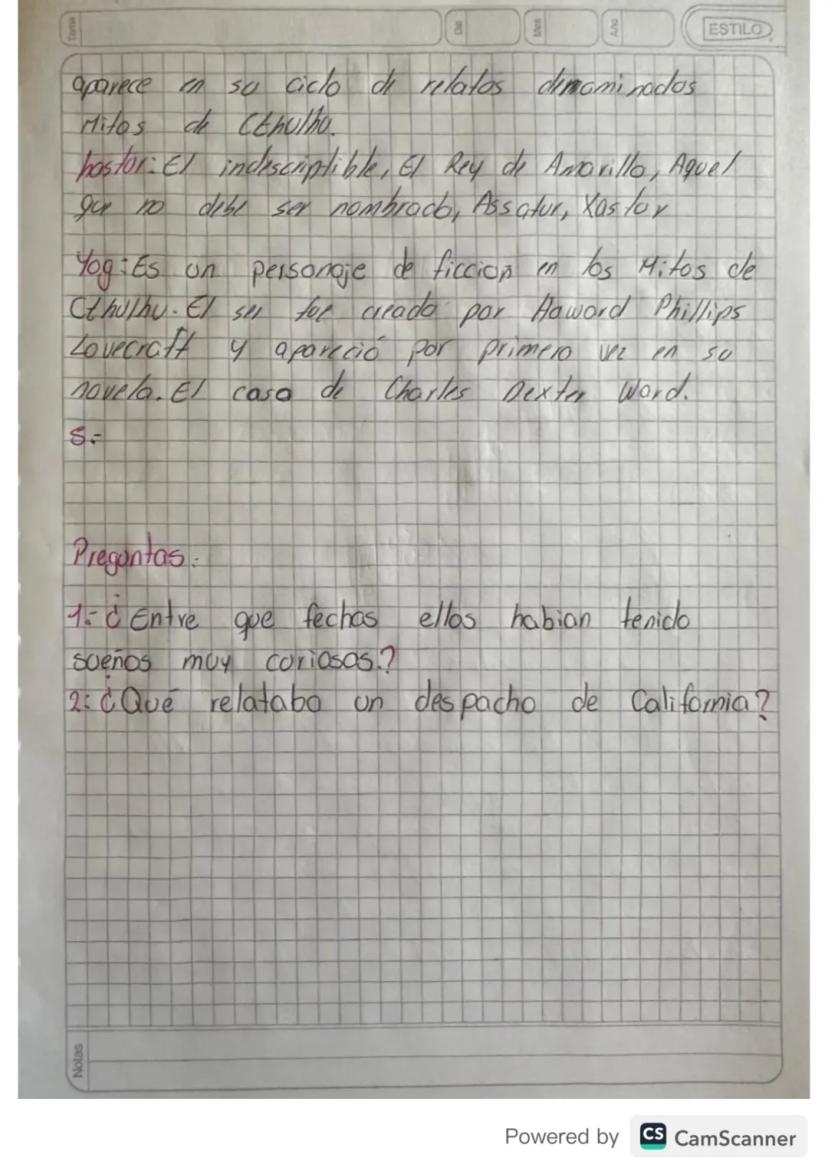 Tema Día Mes Año ESTILO
aparece en su ciclo de relatos denominados
Mitos de Cthulho.
hastor: El indescriptible, El Rey de Amarillo, Aquel
que no debe ser nombrado, Assatur, Xastor
Yog: Es un personaje de ficcion en los Mitos de
Cthulhu. El ser fue creado por Howord Phillips
Lovecraft y apareció por primera vez en su
novela. El caso de Charles Dexter Word.
5.-
Preguntas:
1.- ¿Entre que fechas ellos habian tenido
sueños muy curiosos.?
2: ¿Qué relataba un despacho de California?
Notas
Powered by CS CamScanner